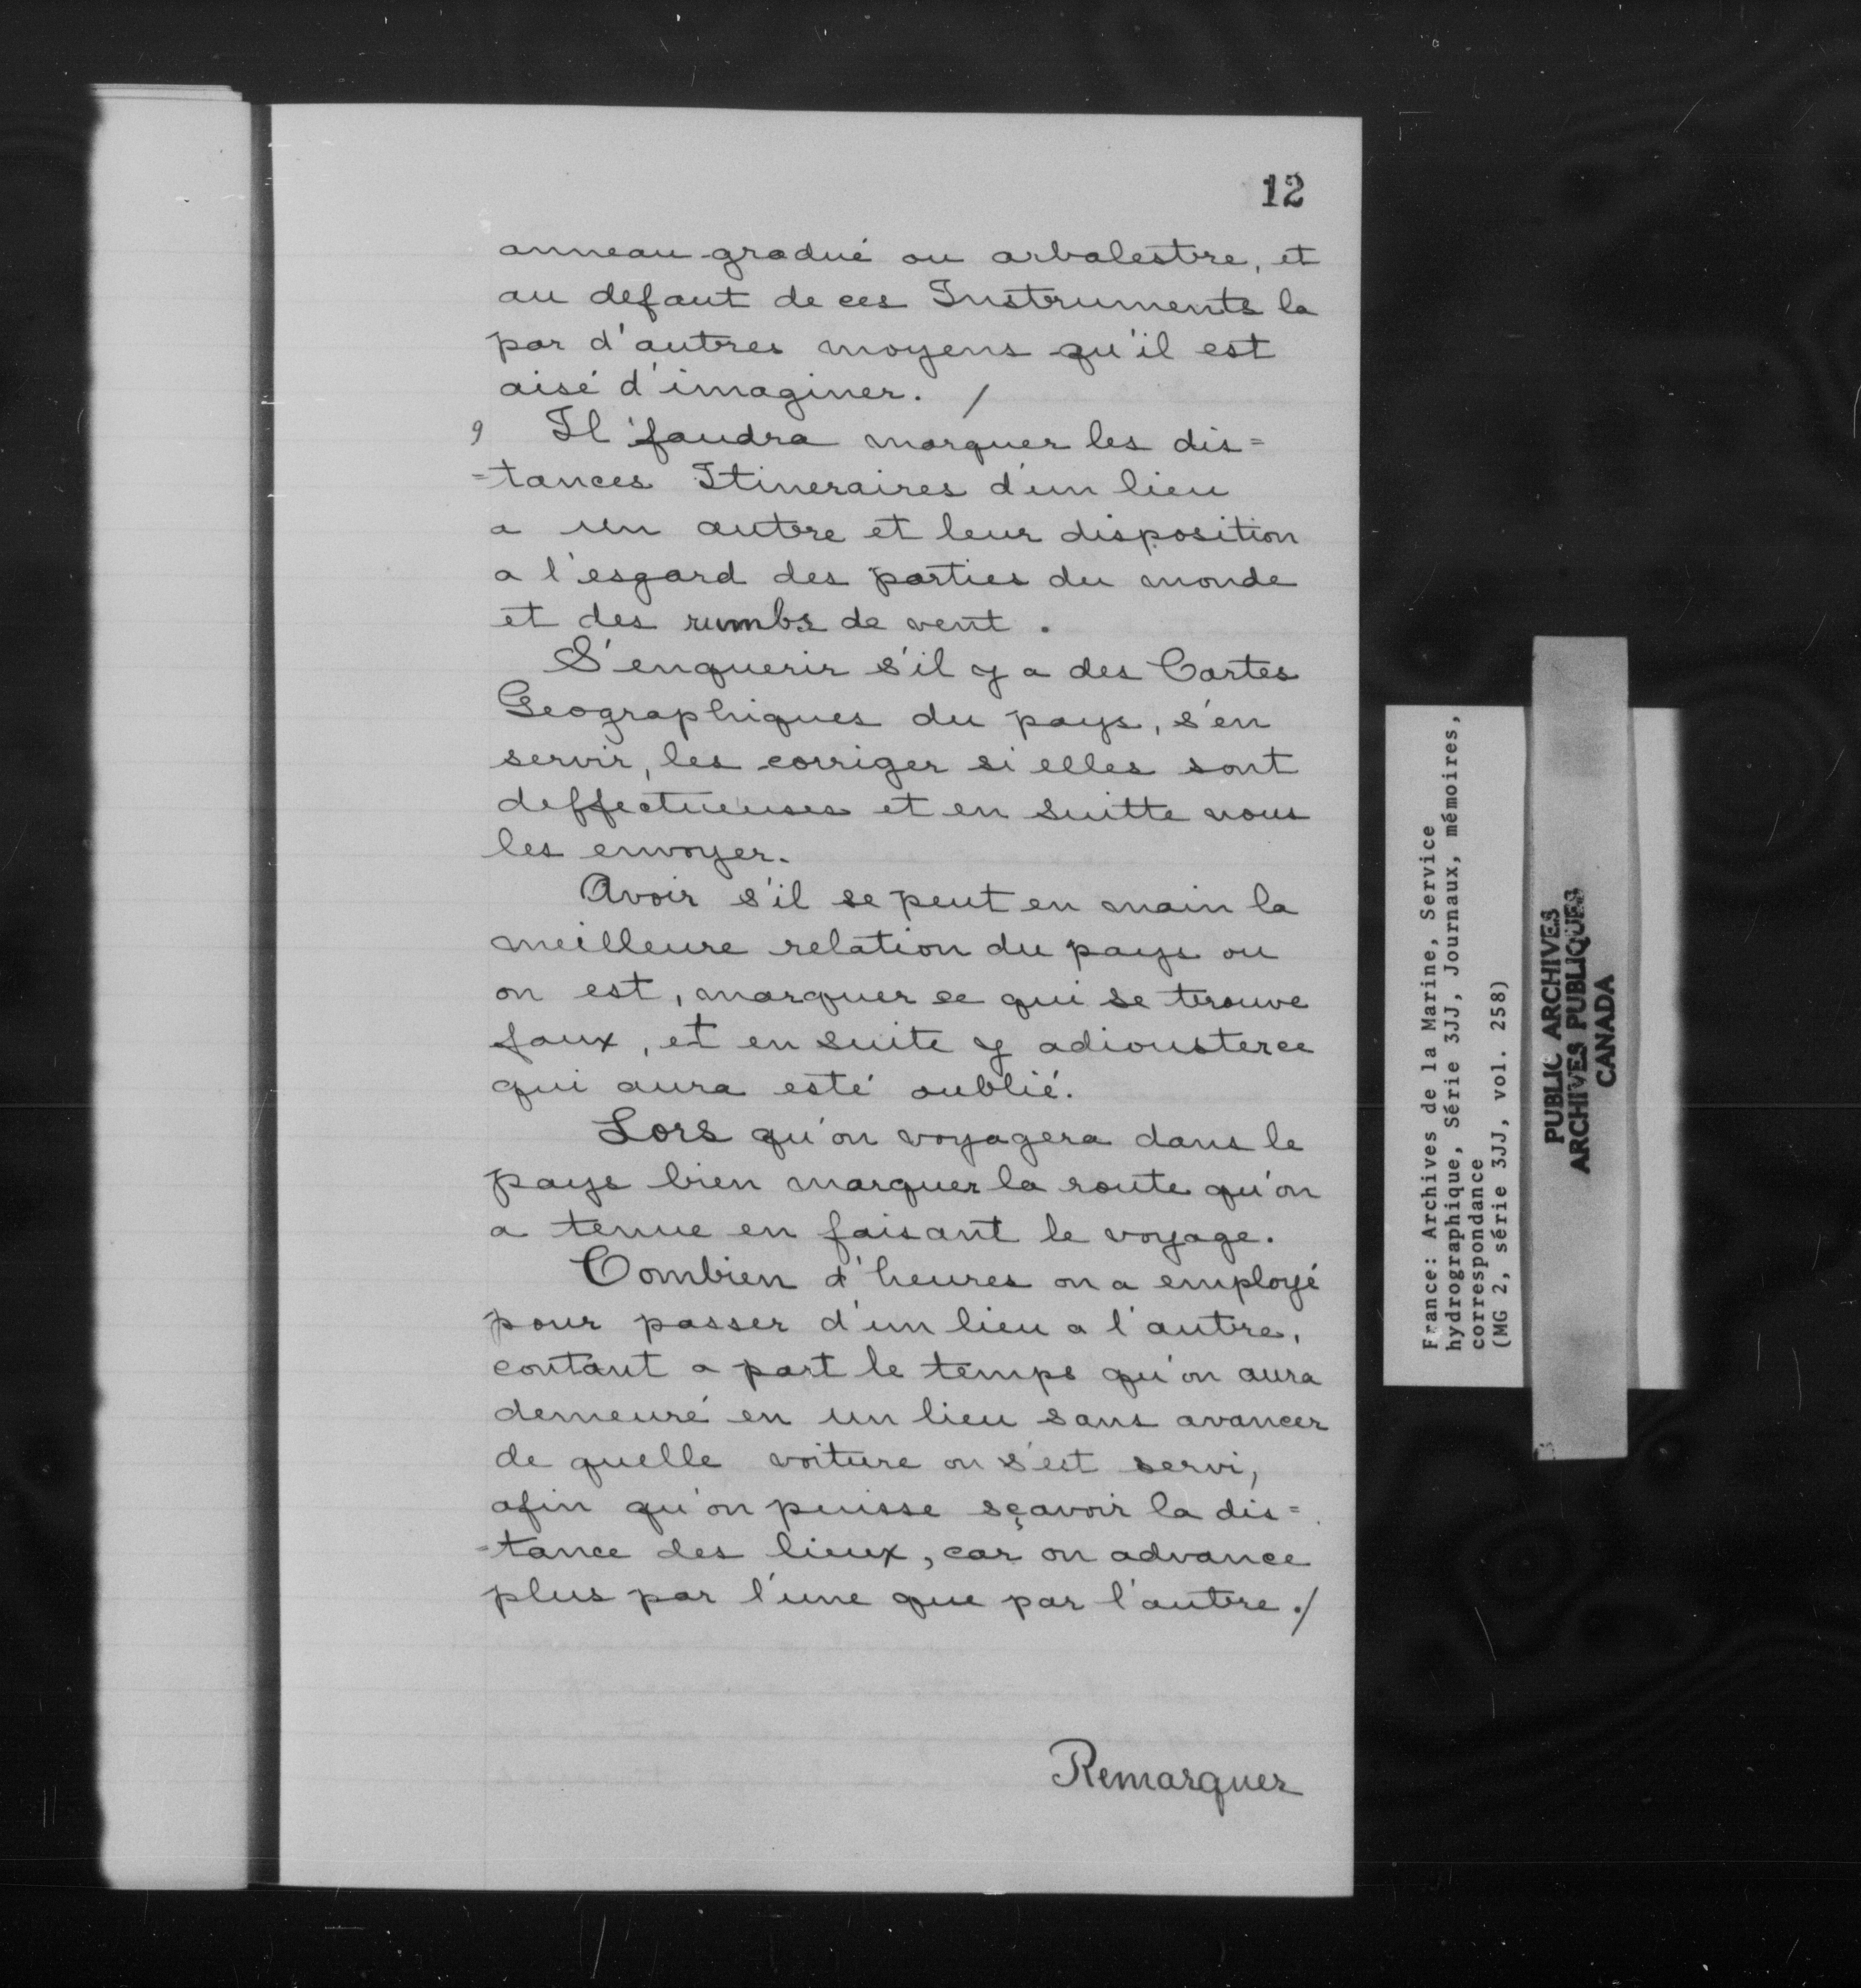 12
anneau gradué ou arbalestre, et
au defaut de ces Instruments la
par d'autres moyens qu'il est
aisé d'imaginer. /
9 Il faudra marquer les dis=
=tances Itineraires d'un lieu
a un autre et leur disposition
a l'esgard des parties du monde
et des rumbs de vent.
S'enquerir s'il y a des Cartes
Geographiques du pays, s'en
servir, les corriger si elles sont
deffectueuses et en suitte nous
les envoyer.
Avoir s'il se peut en main la
meilleure relation du pays ou
on est, marquer ce qui se trouve
faux, et en suite y adiouster ce
qui aura esté oublié.
Lors qu'on voyagera dans le
pays bien marquer la route qu'on
a tenue en faisant le voyage.
Combien d'heures on a employé
pour passer d'un lieu a l'autre,
contant a part le temps qu'on aura
demeuré en un lieu sans avancer
de quelle voiture on s'est servi,
afin qu'on puisse sçavoir la dis=
=tance des lieux, car on advance
plus par l'une que par l'autre./
Remarquer
France: Archives de la Marine, Service
hydrographique, Série 3JJ, Journaux, mémoires,
correspondance
(MG 2, série 3JJ, vol. 258)
PUBLIC ARCHIVES
ARCHIVES PUBLIQUES
CANADA